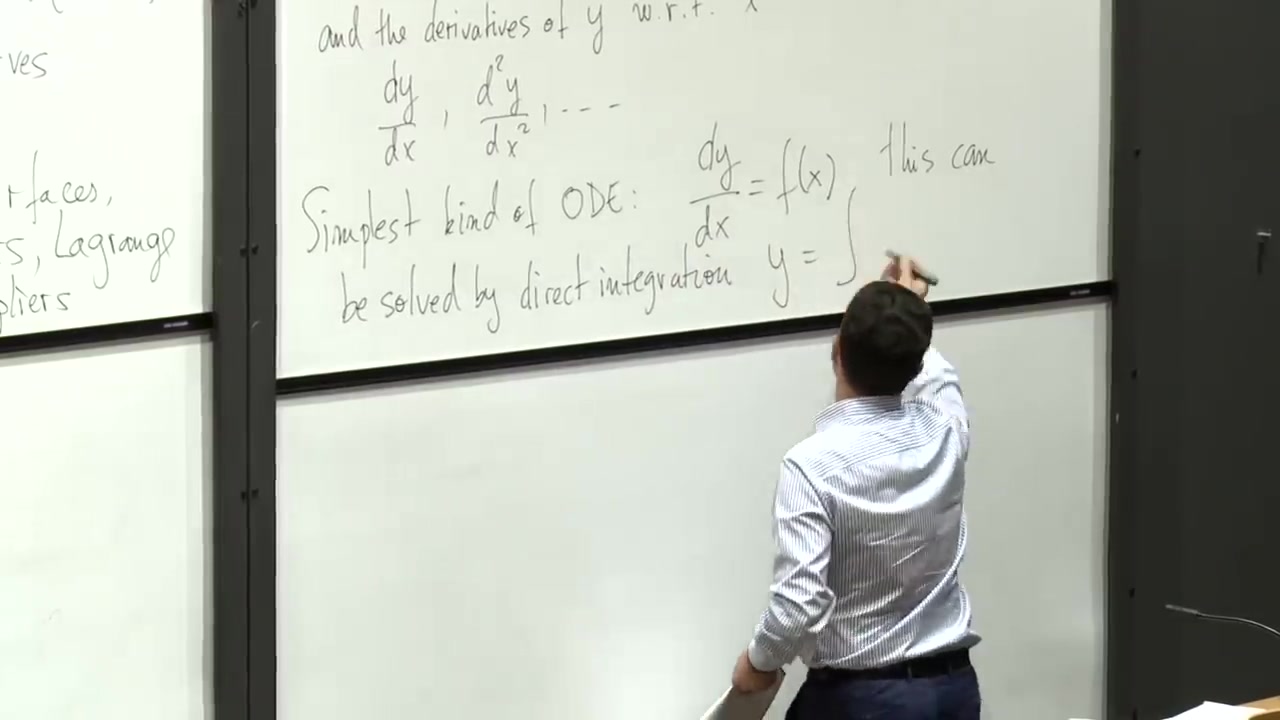 ves
rfaces,
s, Lagrange
pliers
and the derivatives of y w.r.t. x
dy/dx , d²y/dx² , ----
Simplest kind of ODE: dy/dx = f(x), this can
be solved by direct integration y = ∫